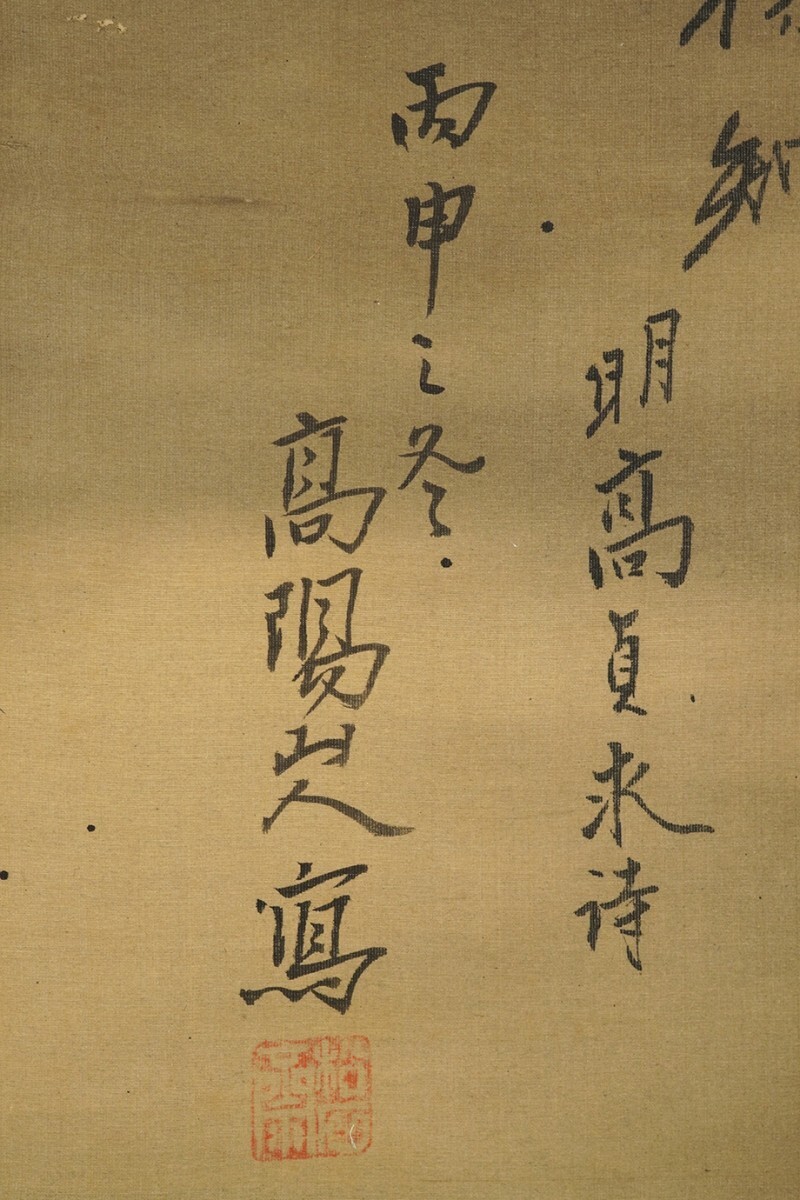 知
明高貞永诗
丙申之冬
高陽山人寫